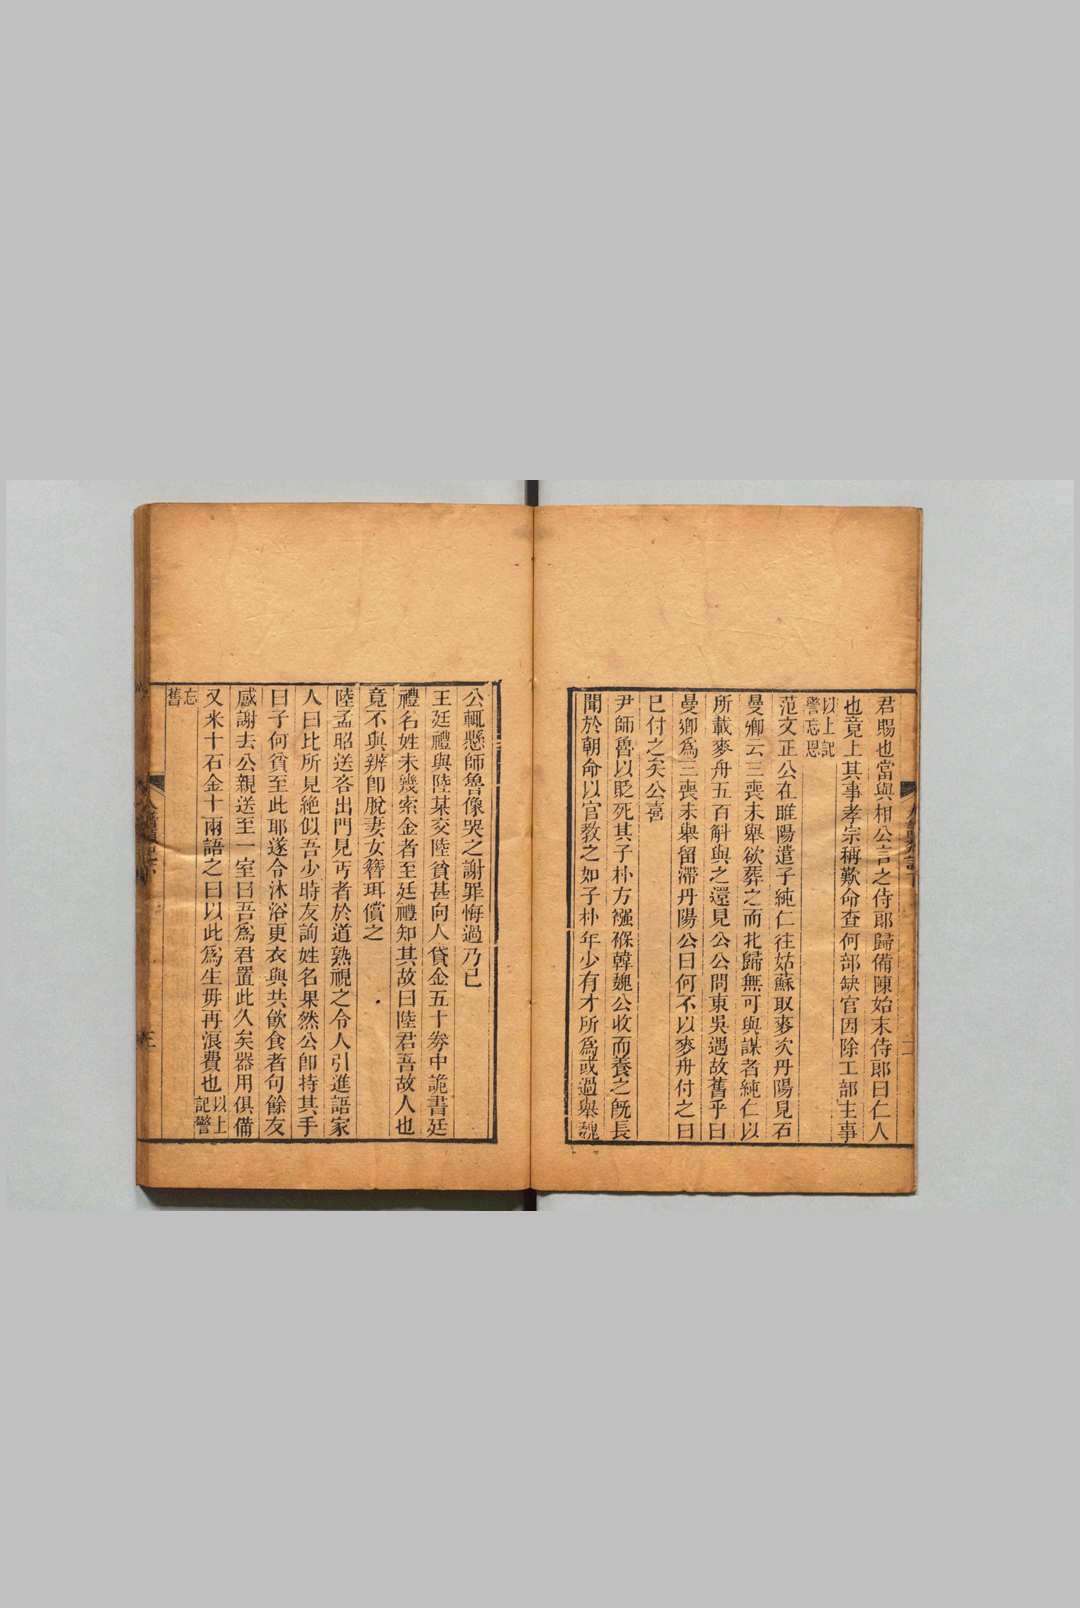 君賜也當與相公言之侍郞歸備陳始末侍郞曰仁人
也竟上其事孝宗稱歎命查何部缺官因除工部主事
以上記
警忘恩
范文正公在睢陽遣子純仁往姑蘇取麥次丹陽見石
曼卿云三喪未舉欲葬之而北歸無可與謀者純仁以
所載麥舟五百斛與之還見公公問東吳遇故舊乎曰
曼卿爲三喪未舉留滯丹陽公曰何不以麥舟付之曰
已付之矣公喜
尹師魯以貶死其子朴方襁褓韓魏公收而養之旣長
聞於朝命以官教之如子朴年少有才所爲或過舉魏
公輒懸師魯像哭之謝罪悔過乃已
王廷禮與陸某交陸貧甚向人貸金五十劵中詭書廷
禮名姓未幾索金者至廷禮知其故曰陸君吾故人也
竟不與辨卽脫妻女簪珥償之
陸孟昭送客出門見丐者於道熟視之令人引進語家
人曰比所見絶似吾少時友詢姓名果然公卽持其手
曰子何貧至此耶遂令沐浴更衣與共飮食者旬餘友
感謝去公親送至一室曰吾爲君置此久矣器用俱備
又米十石金十兩語之曰以此爲生毋再浪費也以上
記警
忘
舊